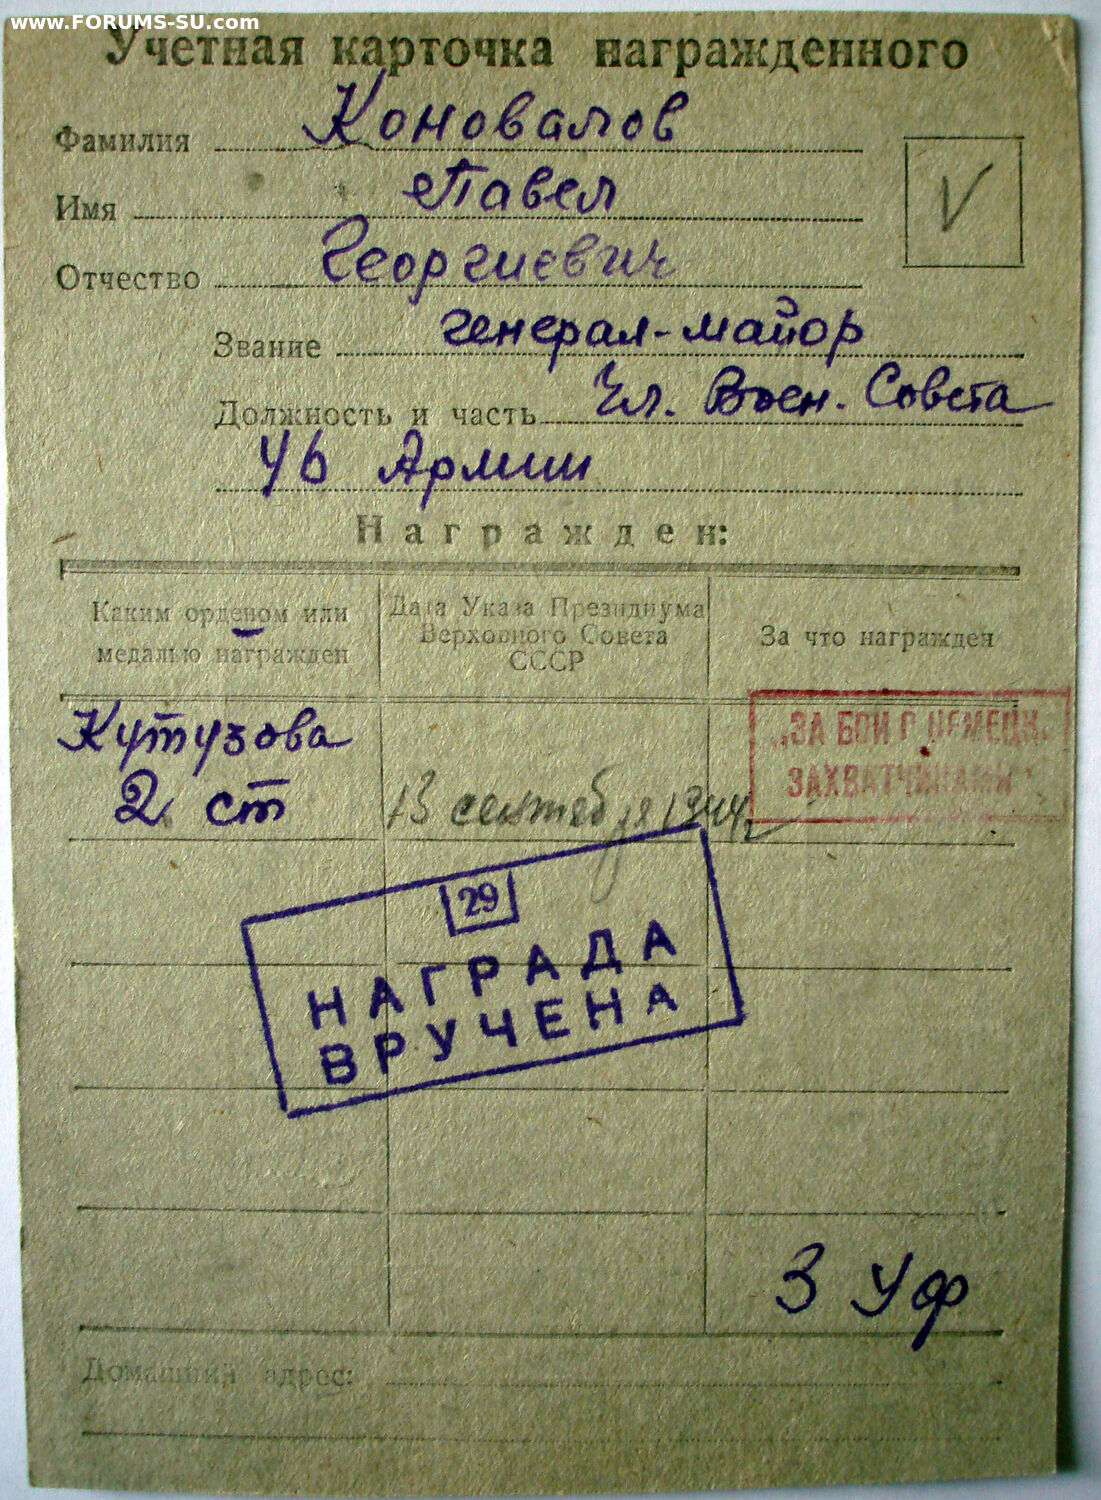 www.FORUMS-SU.com
Учетная карточка награжденного
Фамилия Коновалов
Имя Павел
Отчество Георгиевич
V
Звание генерал-майор
Должность и часть Чл. Воен. Совета
46 Армии
Награжден:
Каким орденом или медалью награжден
Дата Указа Президиума Верховного Совета СССР
За что награжден
Кутузова
2 ст
13 сентября 1944
„ЗА БОИ С НЕМЕЦК.
ЗАХВАТЧИКАМИ"
29
НАГРАДА
ВРУЧЕНА
3 Уф
Домашний адрес: